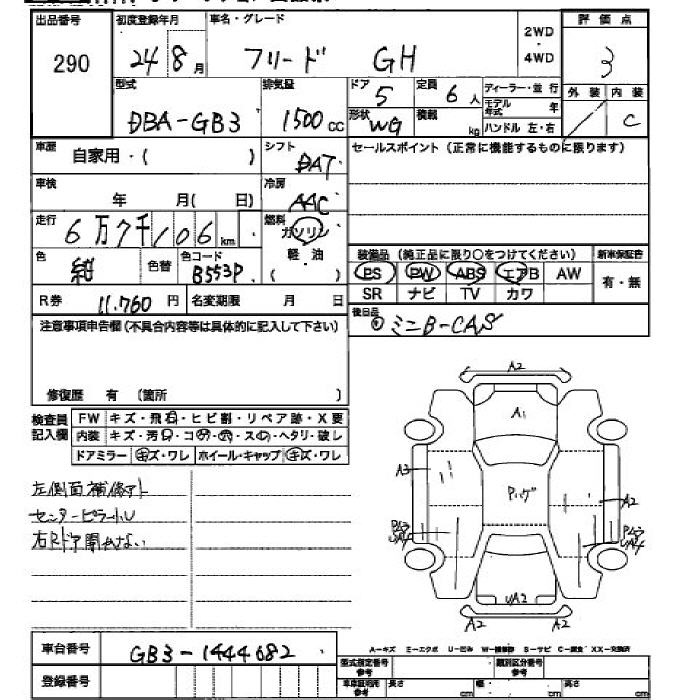 出品番号 初度登録年月 車名・グレード 2WD・4WD 評価点
290 24年8月 フリード GH 3
型式 排気量 ドア 定員 ディーラー・並行 外装 内装
DBA-GB3 1500cc 5 6人 モデル年式 年
形状 WG 積載 kg ハンドル 左・右 C
車歴 自家用・( ) シフト DAT セールスポイント (正常に機能するものに限ります)
車検 年 月( 日) 冷房 AAC
走行 6万7千106km 燃料 ガソリン
色 紺 色替 色コード B553P 軽・油 ( )
装備品 (純正品に限り○をつけてください) 新車保証書
PS PW ABS エアB AW 有・無
SR ナビ TV カワ
R券 11.760円 名変期限 月 日
後日品 ミニB-CAS
注意事項申告欄 (不具合内容等は具体的に記入して下さい)
修復歴 有 (箇所 )
検査員記入欄 FW キズ・飛石・ヒビ割・リペア跡・X要
内装 キズ・汚れ・コゲ・穴・スレ・ヘタリ・破レ
ドアミラー キズ・ワレ ホイール・キャップ キズ・ワレ
左側面補修アト
センターピラー小U
右Rドア開かない
A2
A1
A3
Pハゲ
A2
UA2
A2
A2
車台番号 GB3-1444682
登録番号
A-キズ E-エクボ U-凹み W-補修跡 S-サビ C-腐食 XX-交換済
型式指定番号 参考 類別区分番号 参考
車車証明用 参考 長さ cm 幅 cm 高さ cm